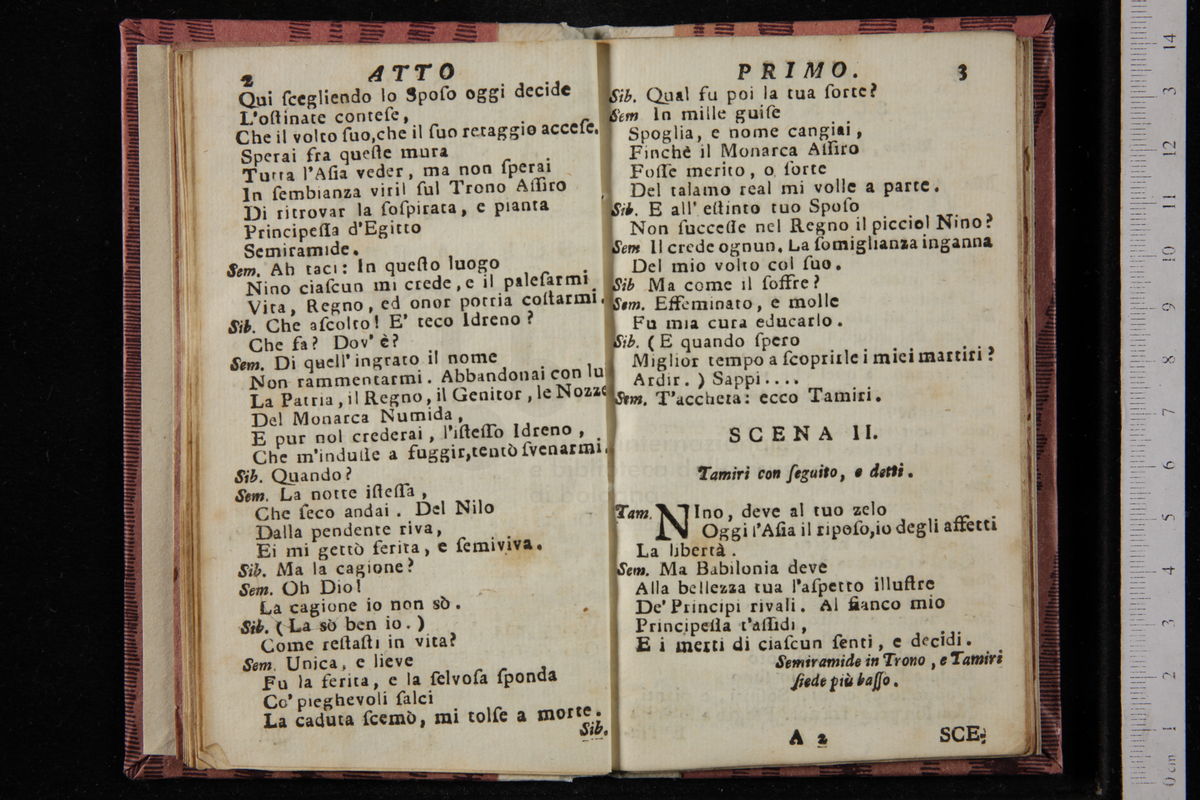 2 ATTO
Qui ſcegliendo lo Spoſo oggi decide
L'oſtinate conteſe,
Che il volto ſuo,che il ſuo retaggio acceſe.
Sperai fra queſte mura
Tutta l'Aſia veder, ma non ſperai
In ſembianza viril ſul Trono Aſſiro
Di ritrovar la ſoſpirata, e pianta
Principeſſa d'Egitto
Semiramide.
Sem. Ah taci: In queſto luogo
Nino ciaſcun mi crede, e il paleſarmi
Vita, Regno, ed onor potria coſtarmi.
Sib. Che aſcolto! E' teco Idreno?
Che fa? Dov' è?
Sem. Di quell' ingrato il nome
Non rammentarmi. Abbandonai con lui
La Patria, il Regno, il Genitor, le Nozze
Del Monarca Numida,
E pur nol crederai, l'iſteſſo Idreno,
Che m'induſſe a fuggir,tentò ſvenarmi.
Sib. Quando?
Sem. La notte iſteſſa,
Che ſeco andai. Del Nilo
Dalla pendente riva,
Ei mi gettò ferita, e ſemiviva.
Sib. Ma la cagione?
Sem. Oh Dio!
La cagione io non sò.
Sib. (La sò ben io.)
Come reſtaſti in vita?
Sem. Unica, e lieve
Fu la ferita, e la ſelvoſa ſponda
Co' pieghevoli ſalci
La caduta ſcemò, mi tolſe a morte.
Sib.
PRIMO. 3
Sib. Qual fu poi la tua ſorte?
Sem In mille guiſe
Spoglia, e nome cangiai,
Finchè il Monarca Aſſiro
Foſſe merito, o ſorte
Del talamo real mi volle a parte.
Sib. E all' eſtinto tuo Spoſo
Non ſucceſſe nel Regno il picciol Nino?
Sem Il crede ognun. La ſomiglianza inganna
Del mio volto col ſuo.
Sib Ma come il ſoffre?
Sem. Effeminato, e molle
Fu mia cura educarlo.
Sib. (E quando ſpero
Miglior tempo a ſcoprirle i miei martiri?
Ardir.) Sappi....
Sem. T'accheta: ecco Tamiri.
SCENA II.
Tamiri con ſeguito, e detti.
Tam. NIno, deve al tuo zelo
Oggi l'Aſia il ripoſo,io degli affetti
La libertà.
Sem. Ma Babilonia deve
Alla bellezza tua l'aſpetto illuſtre
De' Principi rivali. Al fianco mio
Principeſſa t'aſſidi,
E i merti di ciaſcun ſenti, e decidi.
Semiramide in Trono, e Tamiri
ſiede più baſſo.
A 2 SCE-
internazionale
e biblioteca de
di bologna
14
13
12
11
10
9
8
7
6
5
4
3
2
1
0 cm